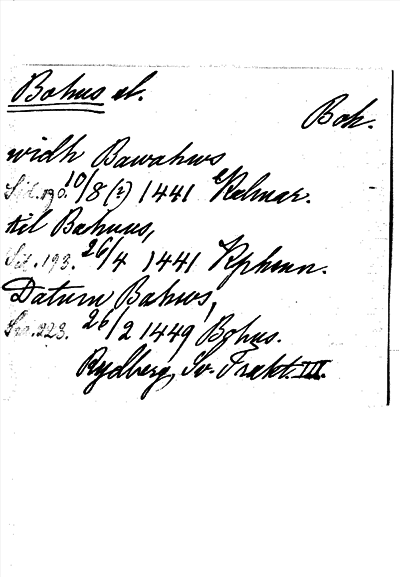 Bohus sl.
Boh.
widh Bawahws
Sid. 190. 10/8 (?) 1441 Kalmar.
til Bahuus,
Sid. 193. 26/4 1441 Kphmn.
Datum Bahws,
Sid. 223. 26/2 1449 Bohus.
Rydberg, Sv. Trakt. III.